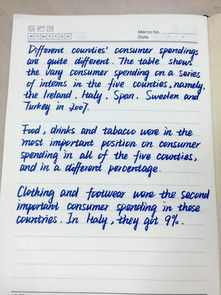 Memo No.
Date
Different counties' consumer spendings
are quite different. The table shows
the vary consumer spending on a series
of intems in the five countries, namely,
the Ireland, Italy, Span, Sweden and
Turkey in 2007.
Food, drinks and tabacco were in the
most important position on consumer
spending in all of the five counties,
and in a different percentage.
Clothing and footwear were the second
important consumer spending in these
countries. In Italy, they got 9%.